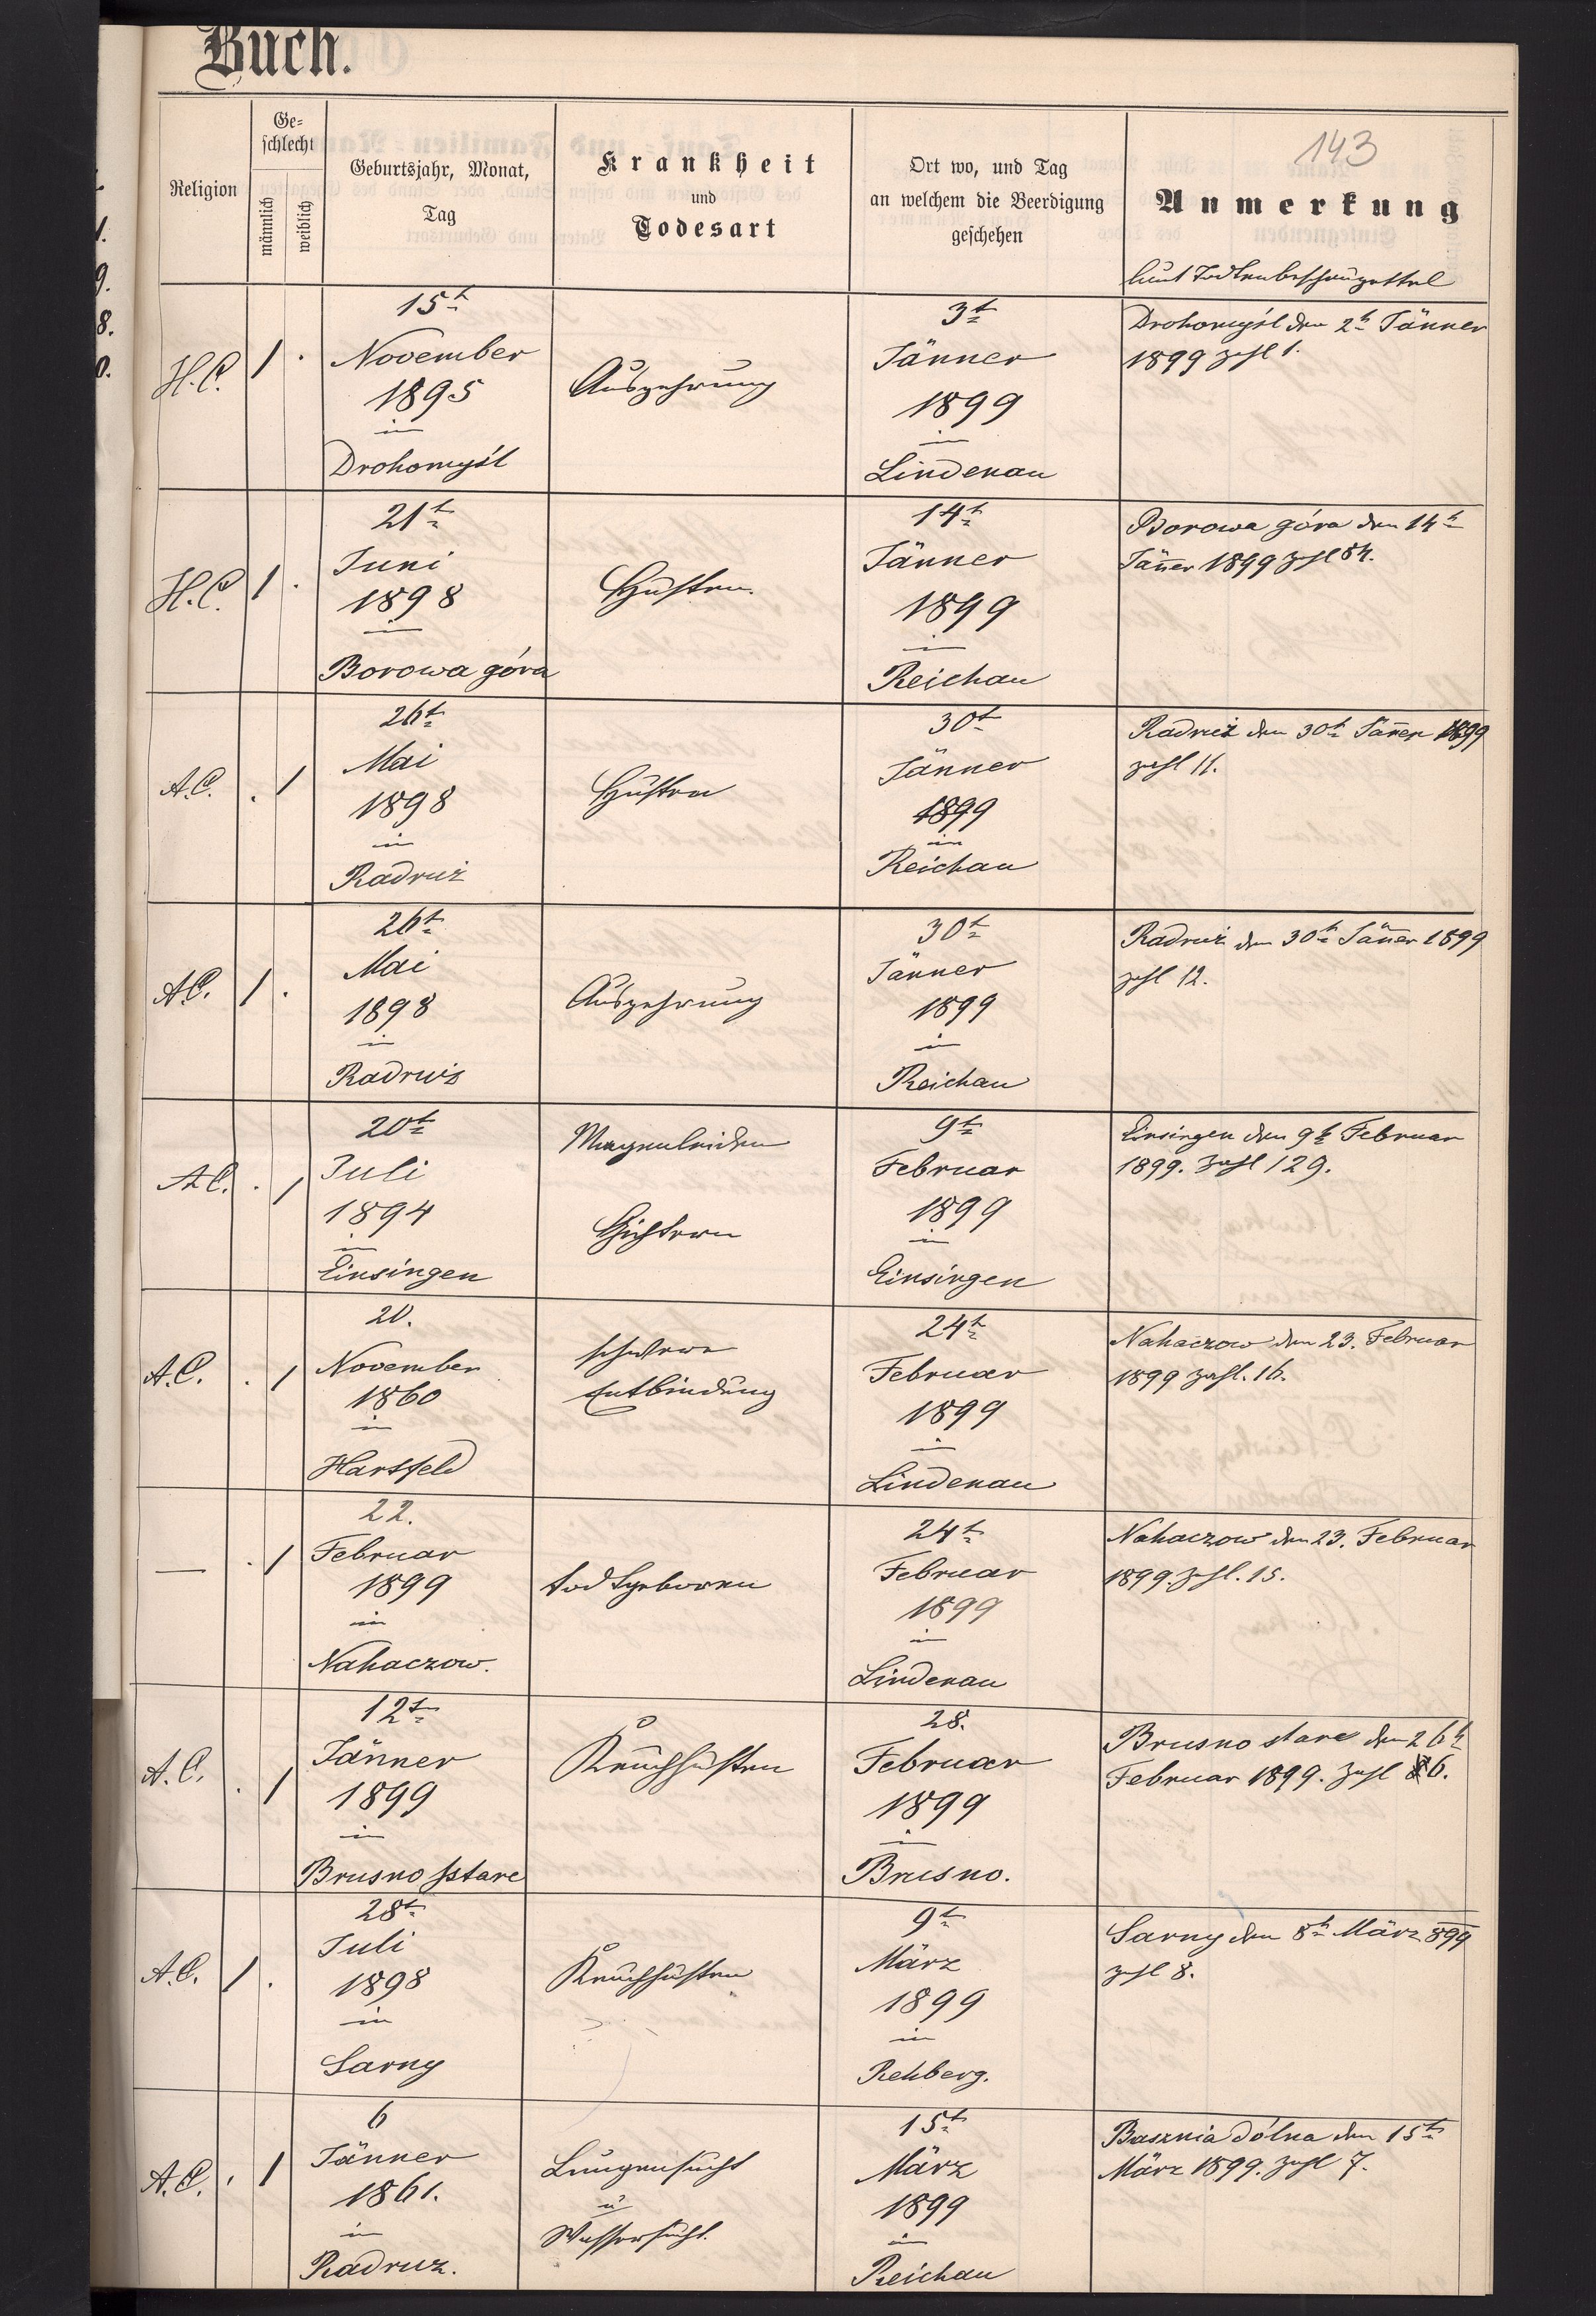 Buch.
143
Religion
Ge-
schlecht
männlich
weiblich
Geburtsjahr, Monat,
Tag
Krankheit
und
Todesart
Ort wo, und Tag
an welchem die Beerdigung
geschehen
Anmerkung
laut Todtenbeschauzettel
H.C.
1 .
15t
November
1895
in
Drohomyśl
Auszehrung
3t
Jänner
1899
in
Lindenau
Drohomyśl den 2t Jänner
1899 zahl 1.
H.C.
1 .
21t
Juni
1898
in
Borowa góra
Husten.
14t
Jänner
1899
in
Reichau
Borowa góra den 14t
Jänner 1899 zahl 84.
A.C.
. 1
26t
Mai
1898
in
Radruż
Husten
30t
Jänner
1899
in
Reichau
Radruż den 30t Jänner 1899
zahl 11.
A.C.
1 .
26t
Mai
1898
in
Radruż
Auszehrung
30t
Jänner
1899
in
Reichau
Radruż den 30t Jänner 1899
zahl 12.
A.C.
. 1
20t
Juli
1894
in
Einsingen
Magenleiden
9t
Februar
1899
in
Einsingen
Einsingen den 9t Februar
1899. Zahl 129.
A.C.
. 1
20.
November
1860
in
Hartfeld
schwere
Entbindung
24t
Februar
1899
in
Lindenau
Nahaczow den 23. Februar
1899 zahl. 16.
—
. 1
22.
Februar
1899
in
Nahaczow.
todtgeboren
24t
Februar
1899
in
Lindenau
Nahaczow den 23. Februar
1899 zahl. 15.
A.C.
. 1
12t
Jänner
1899
in
Brusno stare
Keuchhusten
28.
Februar
1899
in
Brusno.
Brusno stare den 26t
Februar 1899. Zahl 6.
A.C.
1 .
28t
Juli
1898
in
Sarny
Keuchhusten
9t
März
1899
in
Rehberg.
Sarny den 8t März 899
zahl 8.
A.C.
. 1
6
Jänner
1861.
in
Radruz.
Lungensucht
u
Wassersucht.
15t
März
1899
in
Reichau
Basznia dólna den 15t
März 1899. zahl 7.